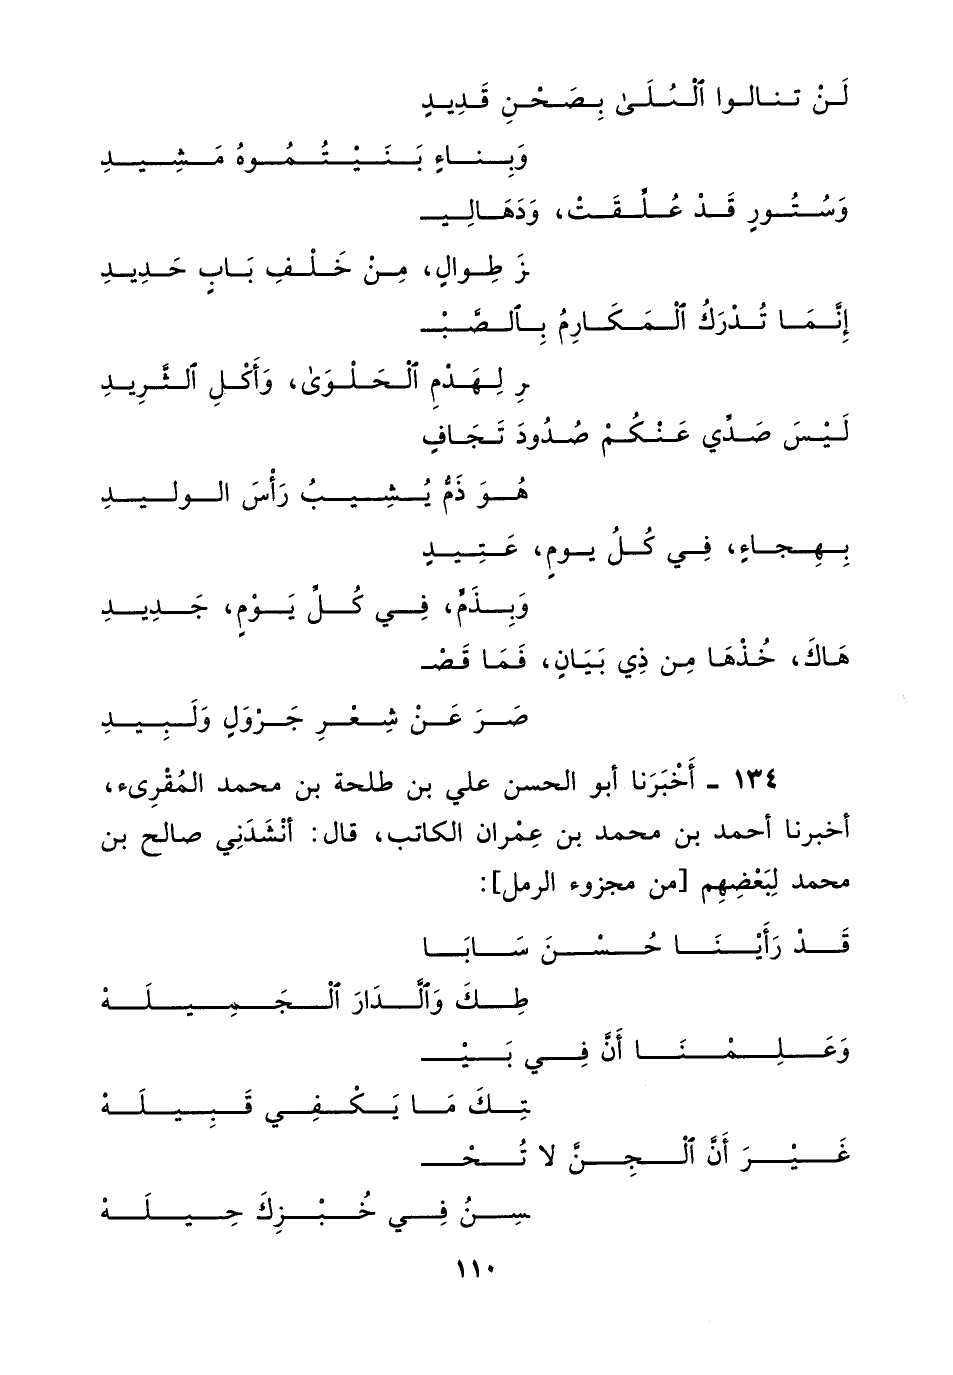 لَنْ تنالوا ٱلْعُلَىٰ بِصَحْنِ قَدِيدٍ
وَبِناءٍ بَنَيْتُمُوهُ مَشِيدِ
وَسُتُورٍ قَدْ عُلِّقَتْ، وَدَهَالِيـ
ـزَ طِوالٍ، مِنْ خَلْفِ بَابٍ حَدِيدِ
إِنَّمَا تُدْرَكُ ٱلْمَكَارِمُ بِٱلصَّبْـ
ـرِ لِهَدْمِ ٱلْحَلْوَىٰ، وَأَكْلِ ٱلثَّرِيدِ
لَيْسَ صَدِّي عَنْكُمْ صُدُودَ تَجَافٍ
هُوَ ذَمٌّ يُشِيبُ رَأْسَ الوليدِ
بِهِجاءٍ، فِي كُلِّ يومٍ، عَتِيدٍ
وَبِذَمٍّ، فِي كُلِّ يَوْمٍ، جَدِيدِ
هَاكَ، خُذْهَا مِن ذِي بَيَانٍ، فَمَا قَصْـ
صَرَ عَنْ شِعْرِ جَرْوَلٍ وَلَبِيدِ
١٣٤ ـ أَخْبَرَنا أبو الحسن علي بن طلحة بن محمد المُقْرِىء،
أخبرنا أحمد بن محمد بن عِمْران الكاتب، قال: أنْشَدَنِي صالح بن
محمد لِبَعْضِهِم [من مجزوء الرمل]:
قَدْ رَأَيْنَا حُسْنَ سَابَا
طِكَ وَٱلَّدَارَ ٱلْجَمِيلَهْ
وَعَلِمْنَا أَنَّ فِي بَيْـ
ـتِكَ مَا يَكْفِي قَبِيلَهْ
غَيْرَ أَنَّ ٱلْجِنَّ لا تُحْـ
ـسِنُ فِي خُبْزِكَ حِيلَهْ
١١٠